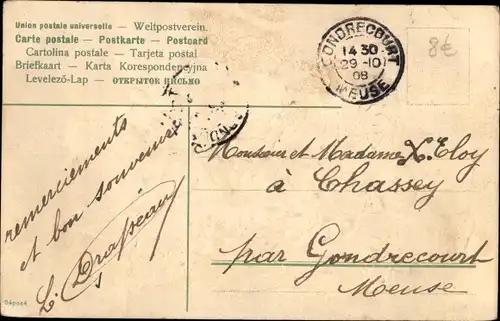 Union postale universelle – Weltpostverein.
Carte postale – Postkarte – Postcard
Cartolina postale – Tarjeta postal
Briefkaart – Karta Korespondencyjna
Levelező-Lap – ОТКРЫТОЕ ПИСЬМО
GONDRECOURT
14 30
29 -10
08
MEUSE
8€
remerciements
et bon souvenir
L. Drapeau
Monsieur et Madame X. Eloy
à Chassey
par Gondrecourt
Meuse
Déposé